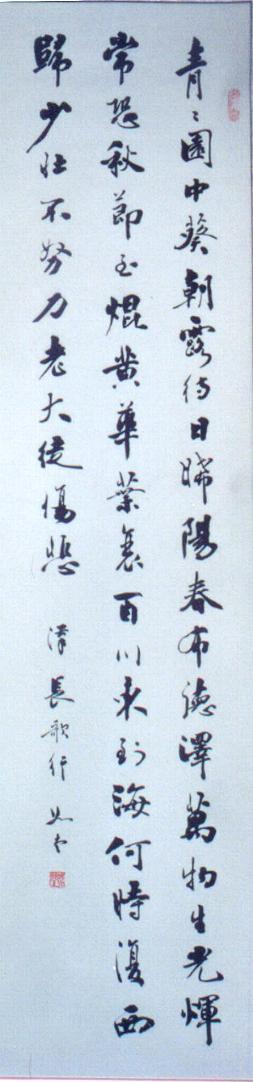 青〻園中葵朝露待日晞陽春布德澤萬物生光煇
常恐秋節至焜黃華葉衰百川東到海何時復西
歸少壯不努力老大徒傷悲 漢長歌行